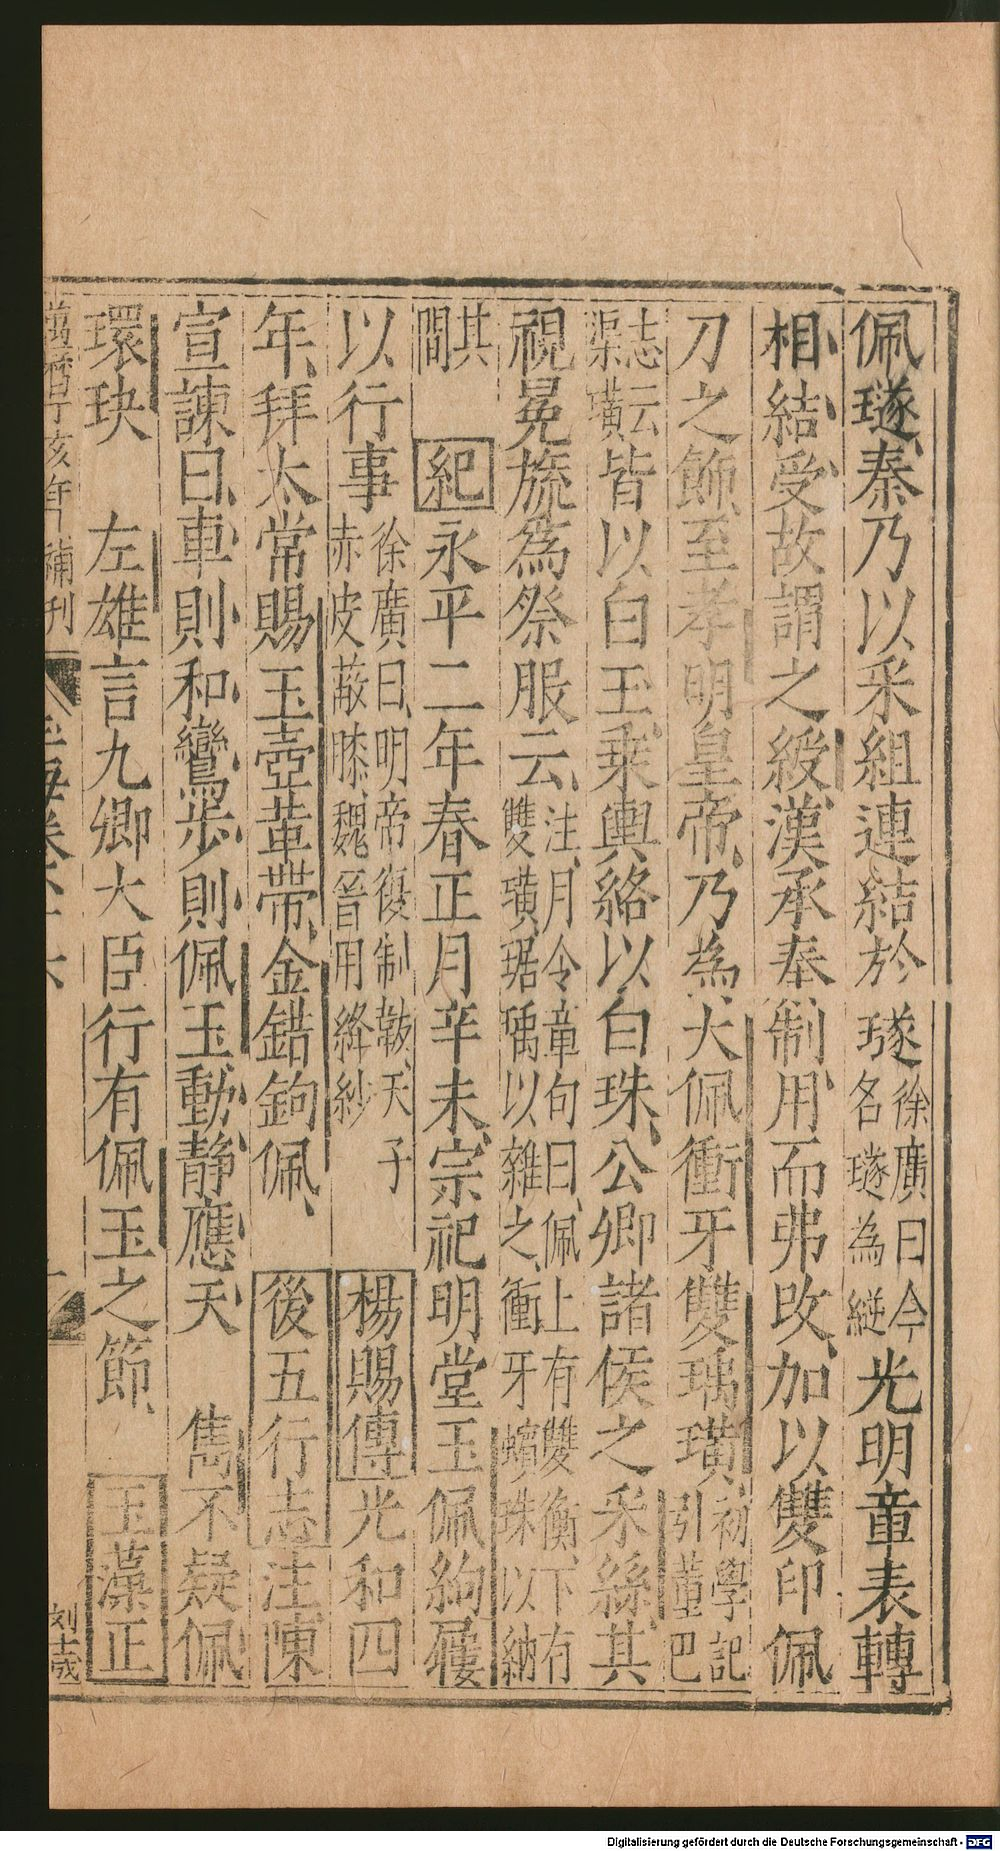 佩璲秦乃以采組連結於璲徐廣曰今名璲為縌光明章表轉
相結受故謂之綬漢承秦制用而弗改加以雙印佩
刀之飾至孝明皇帝乃為大佩衝牙雙瑀璜初學記引董巴
志云渠璜皆以白玉乗輿絡以白珠公卿諸侯之采絲其
視冕旒為祭服云注月令章句曰佩上有雙衡下有雙璜琚瑀以雜之衝牙蠙珠以納
其間紀永平二年春正月辛未宗祀明堂玉佩絇屨
以行事徐廣曰明帝復制韍天子赤皮蔽膝魏晉用絳紗楊賜傳光和四
年拜太常賜玉壺革帶金錯鉤佩後五行志注東
宣諫曰車則和鸞步則佩玉動靜應天　雋不疑佩
環玦　左雄言九卿大臣行有佩玉之節玉藻正
萬曆丁亥年補刊
玉海卷
刘士岁
Digitalisierung gefördert durch die Deutsche Forschungsgemeinschaft - DFG